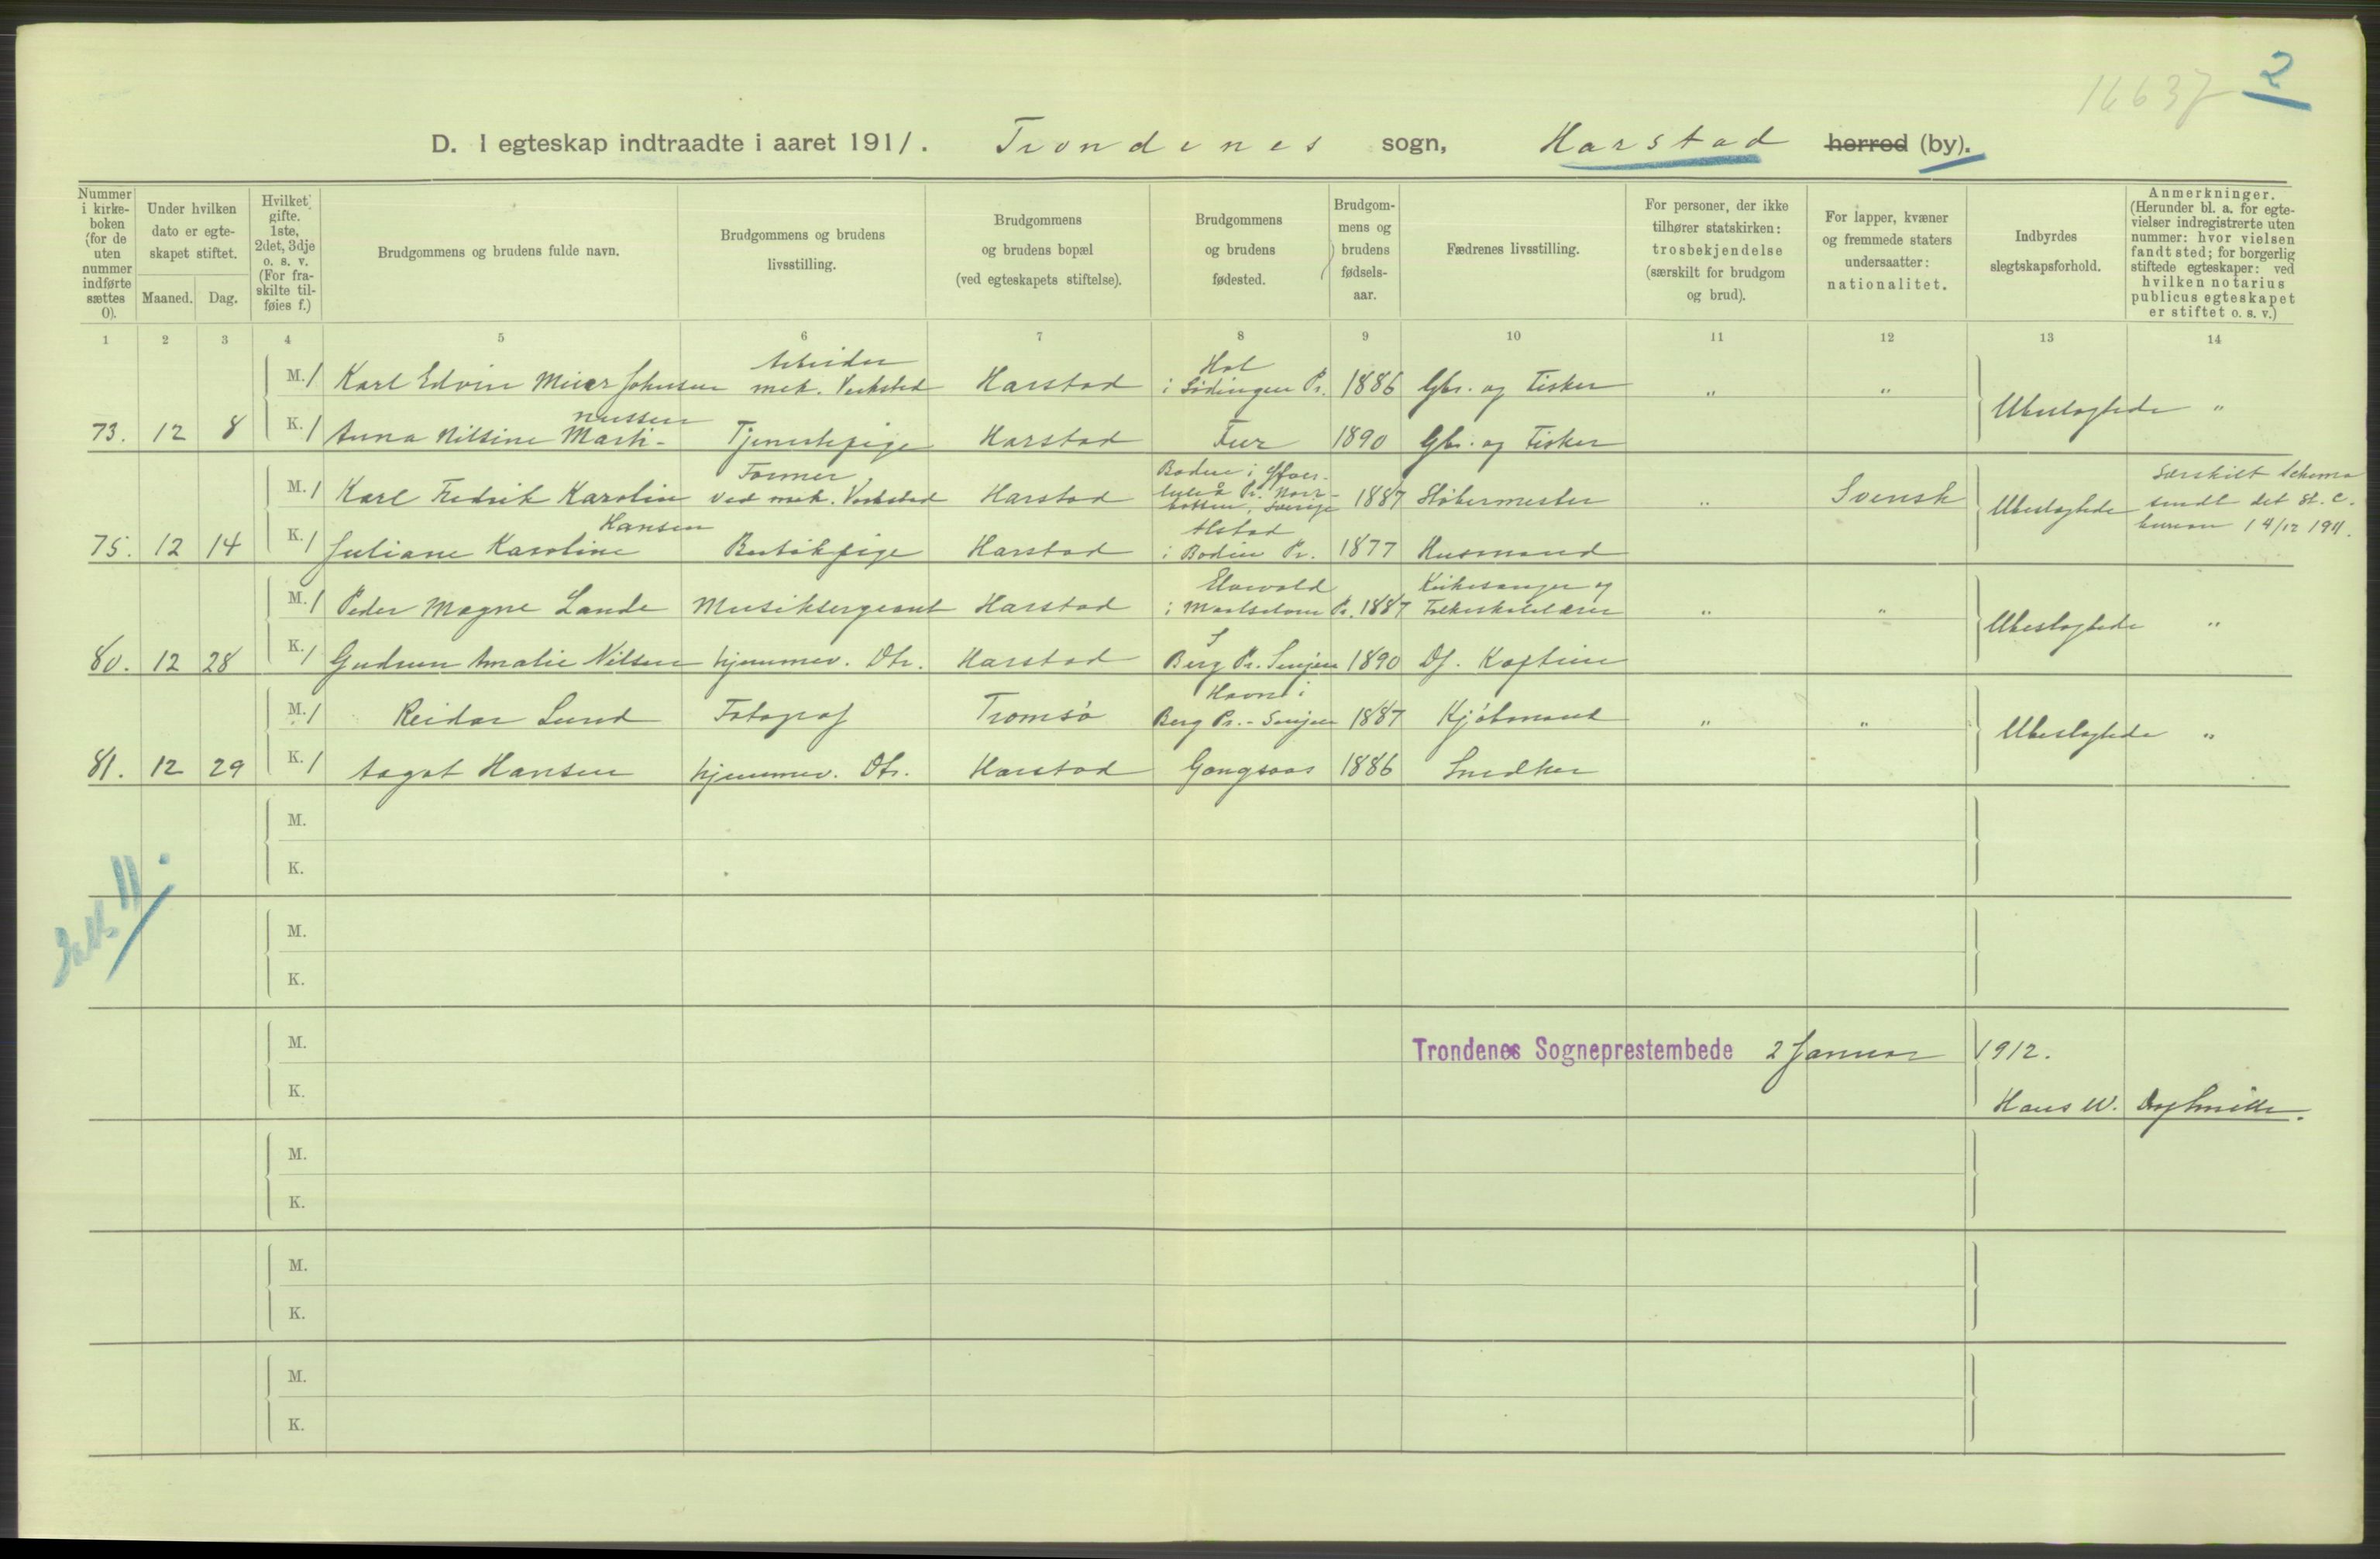 16637 2
D. I egteskap indtraadte i aaret 1911. Trondenes sogn, Harstad herred (by).
Nummer i kirkeboken (for de uten nummer indførte sættes 0).
Under hvilken dato er egteskapet stiftet.
Maaned. Dag.
Hvilket gifte. 1ste, 2det, 3dje o. s. v. (For fraskilte tilføies f.)
Brudgommens og brudens fulde navn.
Brudgommens og brudens livsstilling.
Brudgommens og brudens bopæl (ved egteskapets stiftelse).
Brudgommens og brudens fødested.
Brudgommens og brudens fødselsaar.
Fædrenes livsstilling.
For personer, der ikke tilhører statskirken: trosbekjendelse (særskilt for brudgom og brud).
For lapper, kvæner og fremmede staters undersaatter: nationalitet.
Indbyrdes slegtskapsforhold.
Anmerkninger. (Herunder bl. a. for egtevielser indregistrerte uten nummer: hvor vielsen fandt sted; for borgerlig stiftede egteskaper: ved hvilken notarius publicus egteskapet er stiftet o. s. v.)
1 2 3 4 5 6 7 8 9 10 11 12 13 14
M. 1 Karl Edvin Meier Johnsen Arbeider mek. Verksted Harstad Hol i Lødingen Pr. 1886 Gbr. og Fisker " "
73. 12 8 K. 1 Anna Nilsine Martinussen Tjenestepige Harstad 1890 Gbr. og Fisker Ubeslegtede "
M. 1 Karl Fredrik Karolin Former ved mek. Verksted Harstad Boden i Øfver luleå Pr. Norrbotten, Sverige 1887 Støbermester " Svensk Særskilt Schema sendt det st. C. bureau 14/12 1911.
75. 12 14 K. 1 Juliane Karoline Hansen Budeiepige Harstad Alstad i Bodin Pr. 1877 Husmand Ubeslegtede
M. 1 Peder Magne Lande Musiksergeant Harstad Elvevold i Maalselven Pr. 1887 Kirkesanger og Folkeskolelærer " "
80. 12 28 K. 1 Gudrun Amalie Nilsen hjemmev. Dtr. Harstad I Berg Pr. Senjen 1890 Df. Kaptein Ubeslegtede "
M. 1 Reidar Lund Fotograf Tromsø Havn i Berg Pr. - Senjen 1887 Kjøbmand " "
81. 12 29 K. 1 Aagot Hansen hjemmev. Dtr. Harstad Gangsaas 1886 Snedker Ubeslegtede "
M.
K.
M.
K.
M.
Trondenes Sogneprestembede 2 Januar 1912.
K.
Hans W.
M.
K.
M.
K.
M.
K.